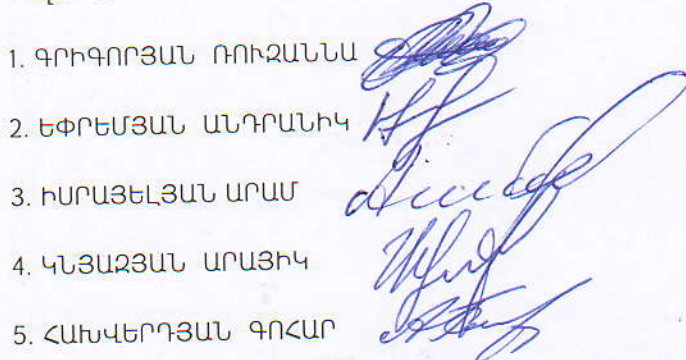 1. ԳՐԻԳՈՐՅԱՆ ՌՈՒԶԱՆՆԱ
2. ԵՓՐԵՄՅԱՆ ԱՆԴՐԱՆԻԿ
3. ԻՍՐԱՅԵԼՅԱՆ ԱՐԱՄ
4. ԿՆՅԱԶՅԱՆ ԱՐԱՅԻԿ
5. ՀԱԽՎԵՐԴՅԱՆ ԳՈՀԱՐ